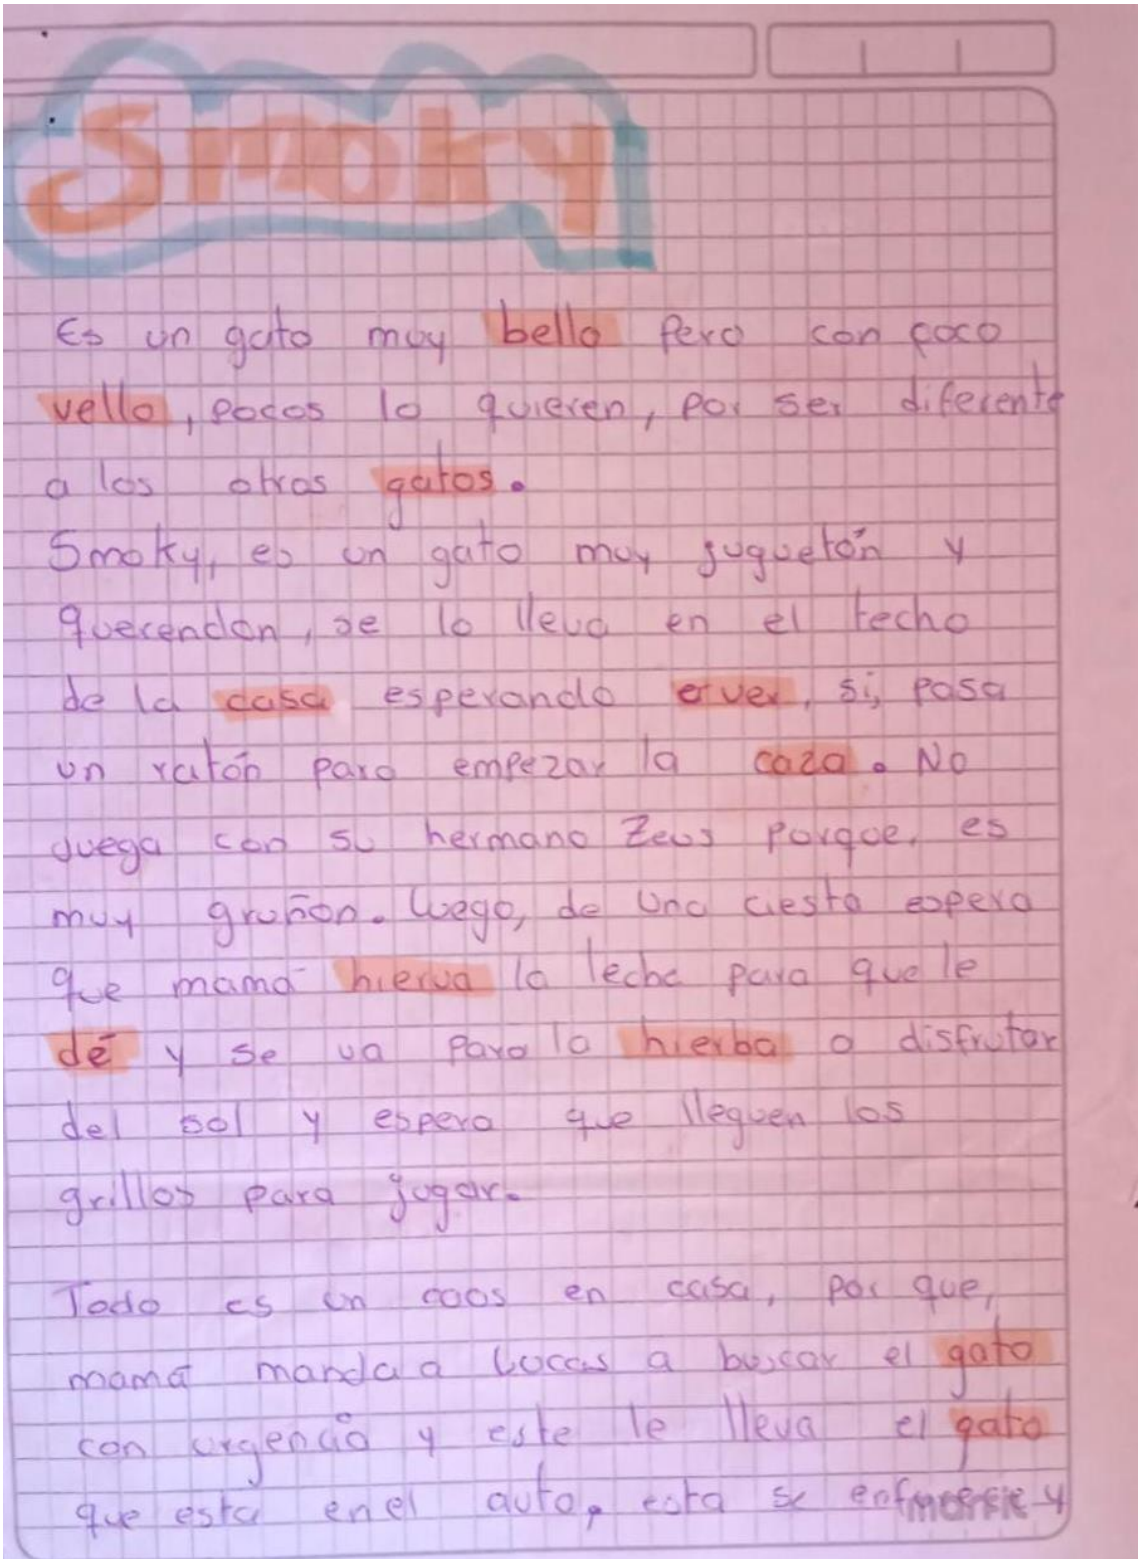 Smoky
Es un gato muy bello pero con poco
vello, pocos lo quieren, por ser diferente
a los otros gatos.
Smoky, es un gato muy juguetón y
querendon, se lo lleva en el techo
de la casa esperando a ver, si, pasa
un ratón para empezar la caza. No
juega con su hermano Zeus porque, es
muy gruñon. Luego, de una ciesta espera
que mamá hierva la leche para que le
dé y se va para la hierba a disfrutar
del sol y espera que lleguen los
grillos para jugar.
Todo es un caos en casa, por que,
mamá manda a Luccas a buscar el gato
con urgencia y este le lleva el gato
que esta en el auto, esta se y